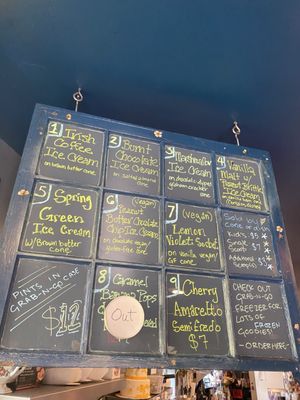 1) Irish
Coffee
Ice Cream
on brown butter cone
2) Burnt
Chocolate
Ice Cream
on salted
cone
3) Marshmallow
Ice Cream
on chocolate dipped
graham cracker
cone
4) Vanilla
Malt w/
Peanut Brittle
Ice Cream
5) Spring
Green
Ice Cream
w/Brown butter
cone
6) (vegan)
Peanut
Butter Chocolate
Chip Ice Cream
on chocolate vegan/
cone
7) (vegan)
Lemon
Violet Sorbet
on vanilla vegan
GF cone
Sold by
cone or dish
Kids $5
Single $7
Additional $2
Scoop
PINTS IN
GRAB-N-GO CASE
$12
8 Caramel
Banana Pops
Out
9) Cherry
Amaretto
Semifredo
$7
CHECK OUT
GRAB-N-GO
FREEZER FOR
LOTS OF
FROZEN
GOODIES!
-ORDER HERE-